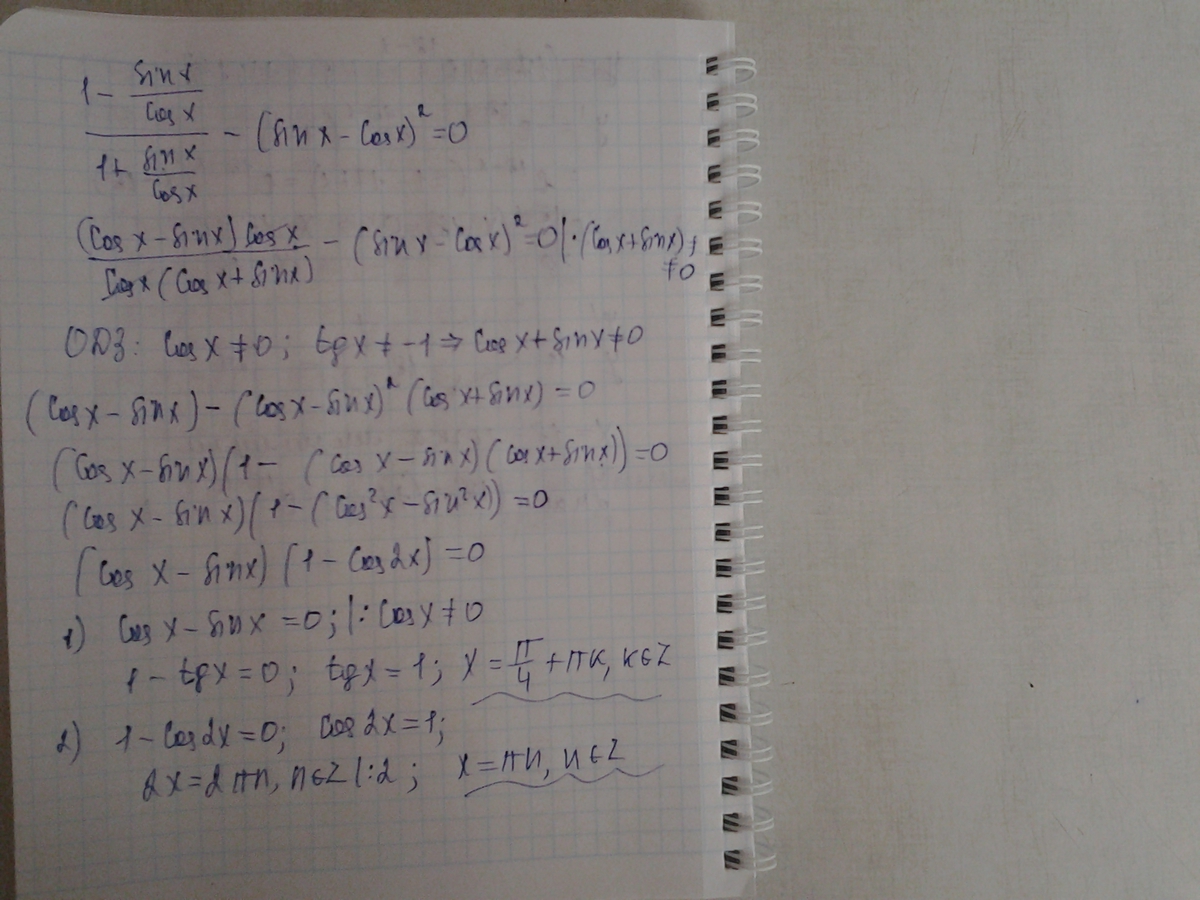 (1 - sin x / cos x) / (1 + sin x / cos x) - (sin x - cos x)² = 0
(cos x - sin x) cos x / cos x (cos x + sin x) - (sin x - cos x)² = 0 | · (cos x + sin x) ≠ 0
ОДЗ: cos x ≠ 0; tg x ≠ -1 ⇒ cos x + sin x ≠ 0
(cos x - sin x) - (cos x - sin x)² (cos x + sin x) = 0
(cos x - sin x)(1 - (cos x - sin x)(cos x + sin x)) = 0
(cos x - sin x)(1 - (cos²x - sin²x)) = 0
(cos x - sin x)(1 - cos 2x) = 0
1) cos x - sin x = 0; | : cos x ≠ 0
1 - tg x = 0; tg x = 1; x = π/4 + πk, k ∈ Z
2) 1 - cos 2x = 0; cos 2x = 1;
2x = 2πn, n ∈ Z | : 2; x = πn, n ∈ Z